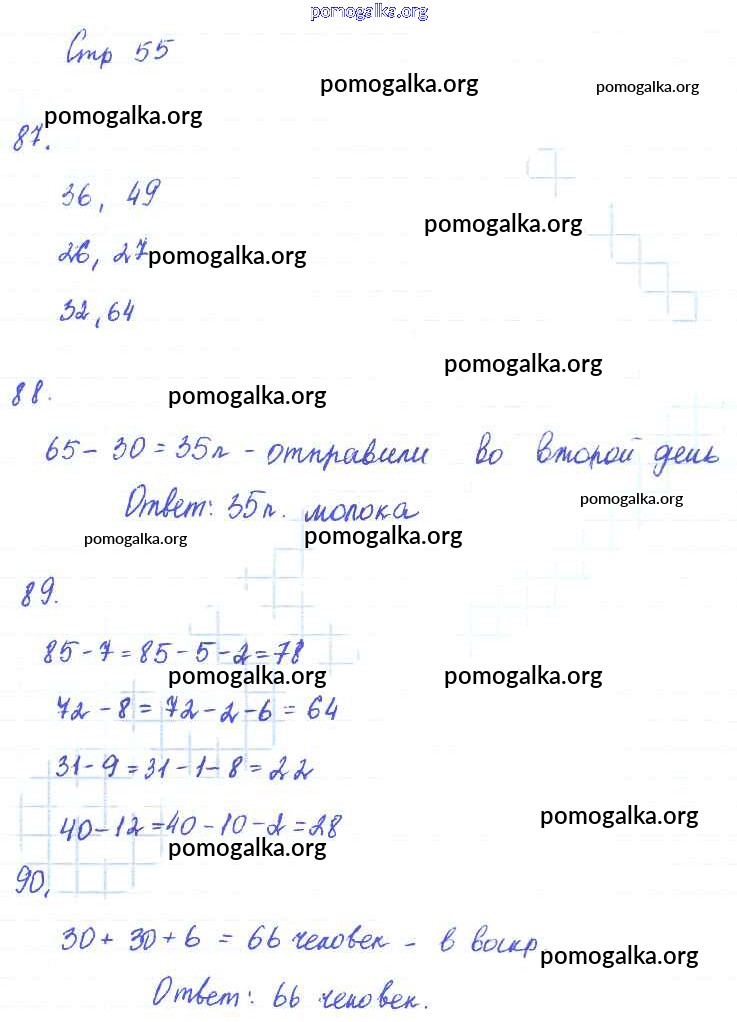 pomogalka.org
Стр 55
pomogalka.org
pomogalka.org
pomogalka.org
87.
36, 49
pomogalka.org
26, 27
pomogalka.org
32, 64
pomogalka.org
88.
pomogalka.org
65 - 30 = 35л - отправили во второй день
Ответ: 35л. молока
pomogalka.org
pomogalka.org
pomogalka.org
89.
85 - 7 = 85 - 5 - 2 = 78
pomogalka.org
pomogalka.org
72 - 8 = 72 - 2 - 6 = 64
31 - 9 = 31 - 1 - 8 = 22
pomogalka.org
40 - 12 = 40 - 10 - 2 = 28
pomogalka.org
90.
30 + 30 + 6 = 66 человек - в воскр.
pomogalka.org
Ответ: 66 человек.